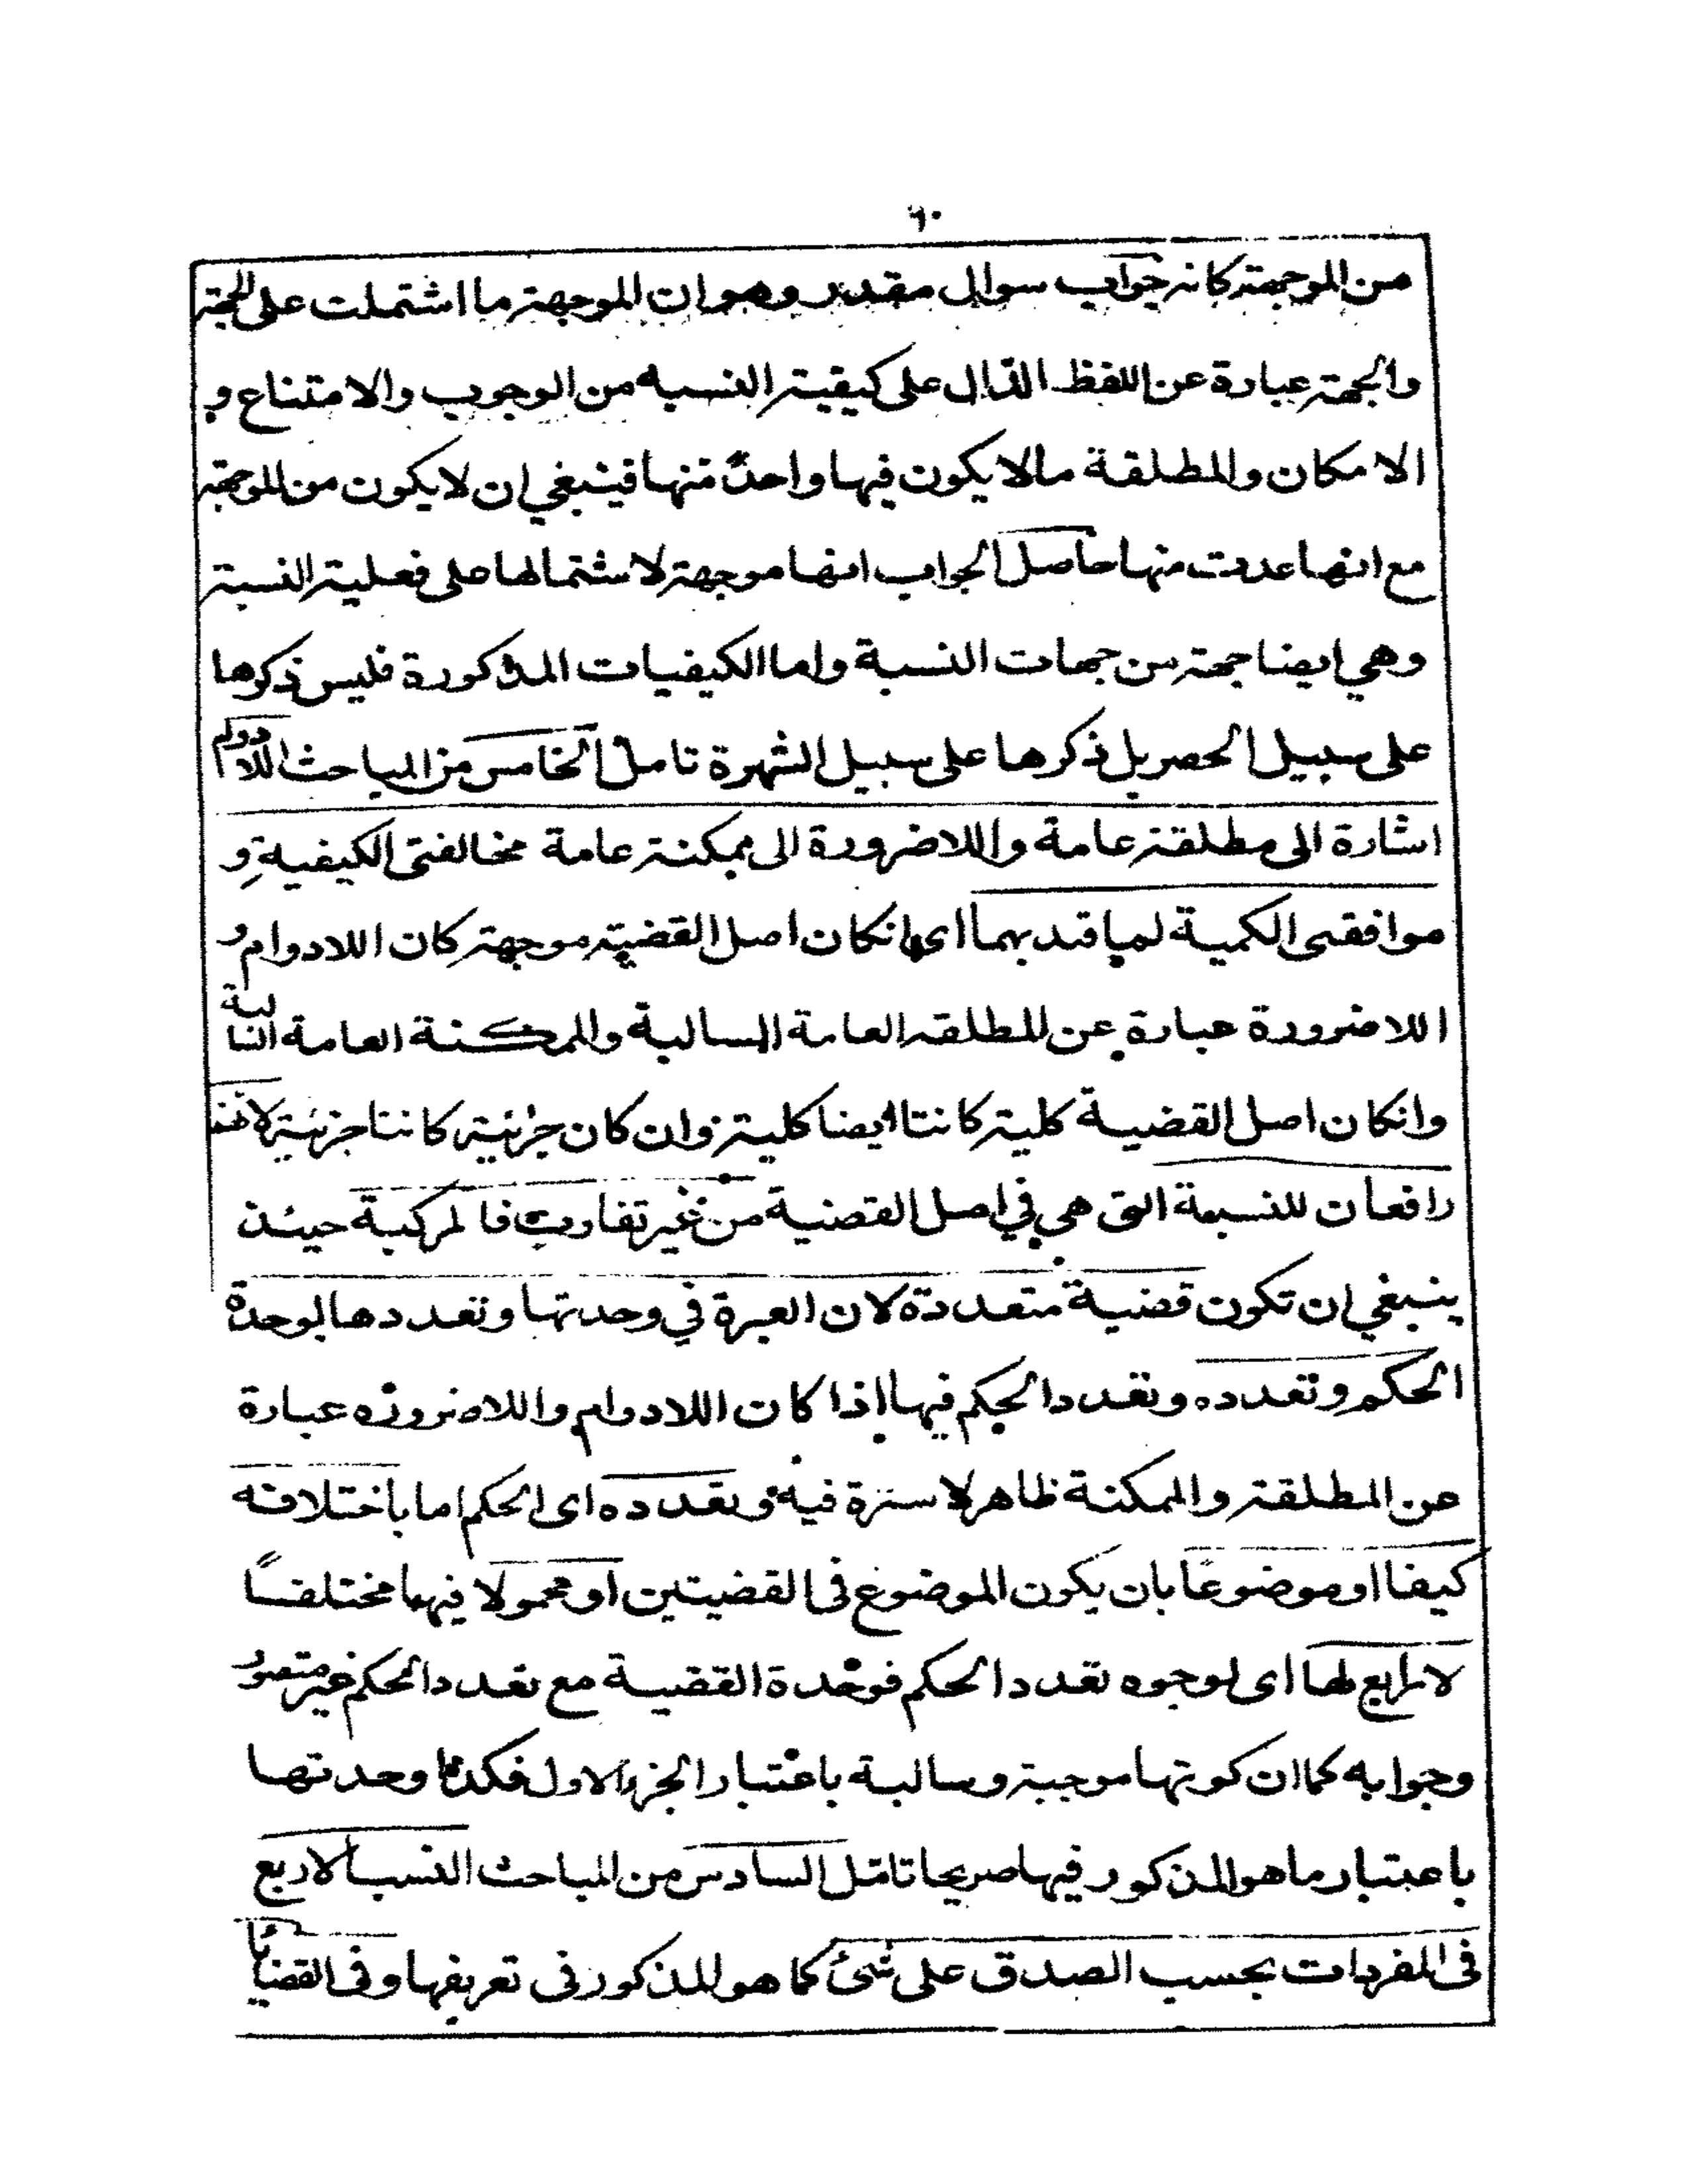 ٦٠
من الموجهة كانه جواب سوال مقدر وهو ان الموجهة ما اشتملت على الجهة
والجهة عبارة عن اللفظ الدّال على كيفية النسبه من الوجوب والامتناع و
الامكان والمطلقة مالا يكون فيها واحدٌ منها فينبغي ان لا يكون من الموجهة
مع انها عدت منها حاصل الجواب انها موجهة لاشتمالها على فعلية النسبة
وهي ايضا جهة من جهات النسبة واما الكيفيات المذكورة فليس ذكرها
على سبيل الحصر بل ذكرها على سبيل الشهرة تامل الخامس من المباحث اللادوام
اشارة الى مطلقة عامة واللاضرورة الى ممكنة عامة مخالفتى الكيفية و
موافقتى الكمية لما قيد بهما اى انكان اصل القضية موجهة كان اللادوام و
اللاضرورة عبارة عن المطلقه العامة السالبة والممكنة العامة السالبة
وانكان اصل القضية كلية كانتا ايضا كلية وان كان جزئية كانتا جزئية لانهما
رافعان للنسبة التى هي في اصل القضية من غير تفاوت فالمركبة حينئذ
ينبغي ان تكون قضية متعددة لان العبرة في وحدتها وتعددها لوحدة
الحكم وتعدده وتعدد الحكم فيها اذا كان اللادوام واللاضرورة عبارة
عن المطلقة والممكنة ظاهر لا سترة فيه وتعدده اى الحكم اما باختلافه
كيفا او موضوعًا بان يكون الموضوع فى القضيتين او محمولا فيهما مختلفًا
لا رابع لها اى لوجوه تعدد الحكم فوحدة القضية مع تعدد الحكم غير متصور
وجوابه كما ان كونها موجبة وسالبة باعتبار الجزء الاول فكذا وحدتها
باعتبار ما هو المذكور فيها صريحا تامّل السادس من المباحث النسب الاربع
فى المفردات بحسب الصدق على شئ كما هو المذكور فى تعريفها وفى القضايا